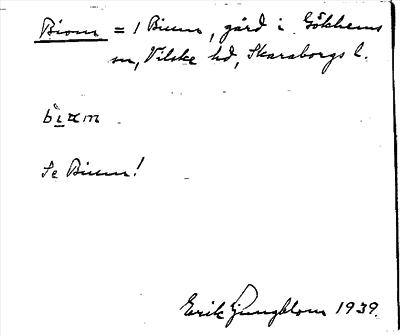 Biom = 1 Bium, gård i Gökhems
sn, Vilske hd, Skaraborgs l.
Se Bium!
Erik Ljungblom 1939.